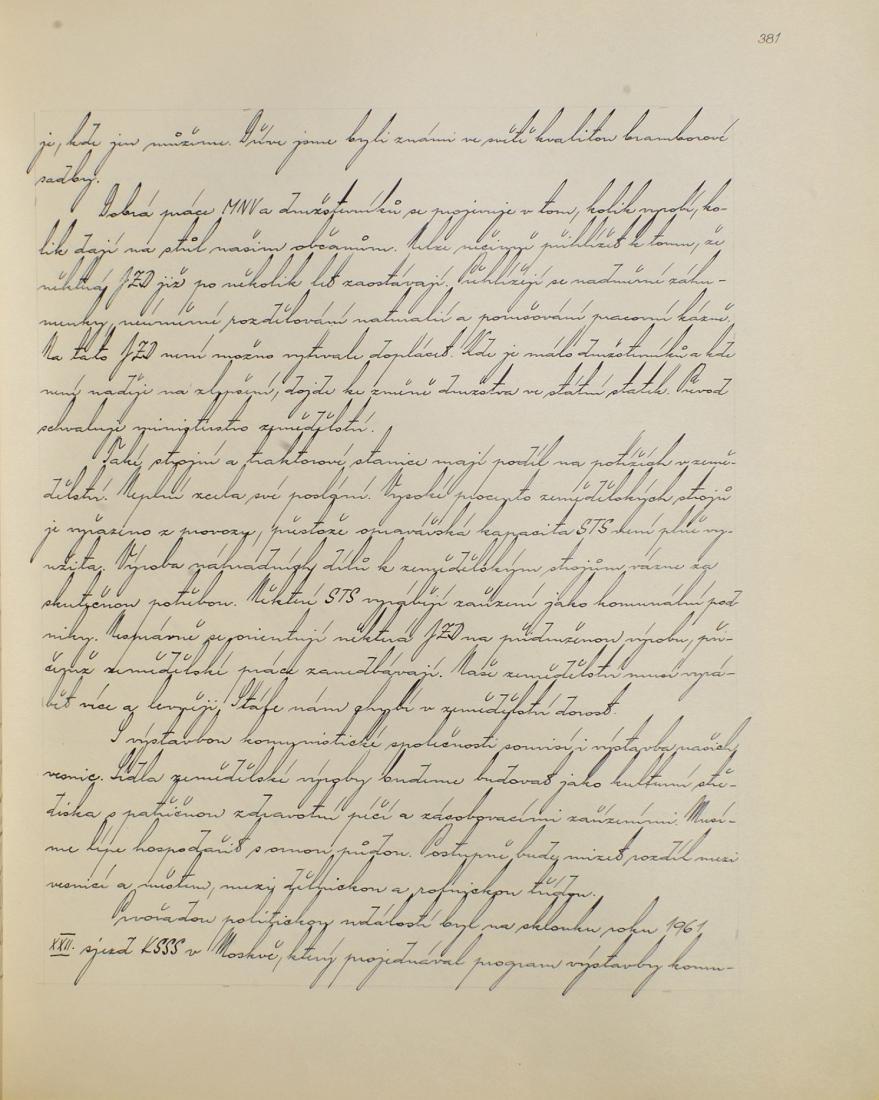 381
je, kde jen můžeme. Dříve jsme byli známi ve světě kvalitou bramborové
sadby.
Dobrá práce MNV a družstevníků se projevuje v tom, kolik vyrobí, ko-
lik dají na stůl našim občanům. Nelze nečinně přihlížet k tomu, že
některá JZD již po několik let zaostávají. Přehlížejí se nadměrné záhu-
menky, neúměrné rozdělování naturalií a porušování pracovní kázně.
Na tato JZD není možno vytrvale doplácet. Kde je málo družstevníků a kde
není naděje na zlepšení, dojde ke změně družstva ve státní statek. Převod
schvaluje ministerstvo zemědělství.
Také strojní a traktorové stanice mají podíl na potížích v země-
dělství. Neplní zcela své poslání. Vysoké procento zemědělských strojů
je vyřazeno z provozu, přestože opravářská kapacita STS není plně vy-
užita. Výroba náhradních dílů k zemědělským strojům vázne za
skutečnou potřebou. Některé STS vyrábějí zařízení jako komunální pod-
niky. Nesprávně se orientují některá JZD na přidruženou výrobu, při-
čemž zemědělské práce zanedbávají. Naše zemědělství musí vyrá-
bět více a levněji. Stále nám chybí v zemědělství dorost.
S výstavbou komunistické společnosti souvisí i výstavba našich
vesnic. Sídla zemědělské výroby budeme budovat jako kulturní stře-
diska s patřičnou zdravotní péčí a zásobovacími zařízeními. Musí-
me lépe hospodařit s ornou půdou. Postupně bude mizet rozdíl mezi
vesnicí a městem, mezi dělnickou a rolnickou třídou.
Prvořadou politickou událostí byl na sklonku roku 1961
XXII. sjezd KSSS v Moskvě, který projednával program výstavby komu-